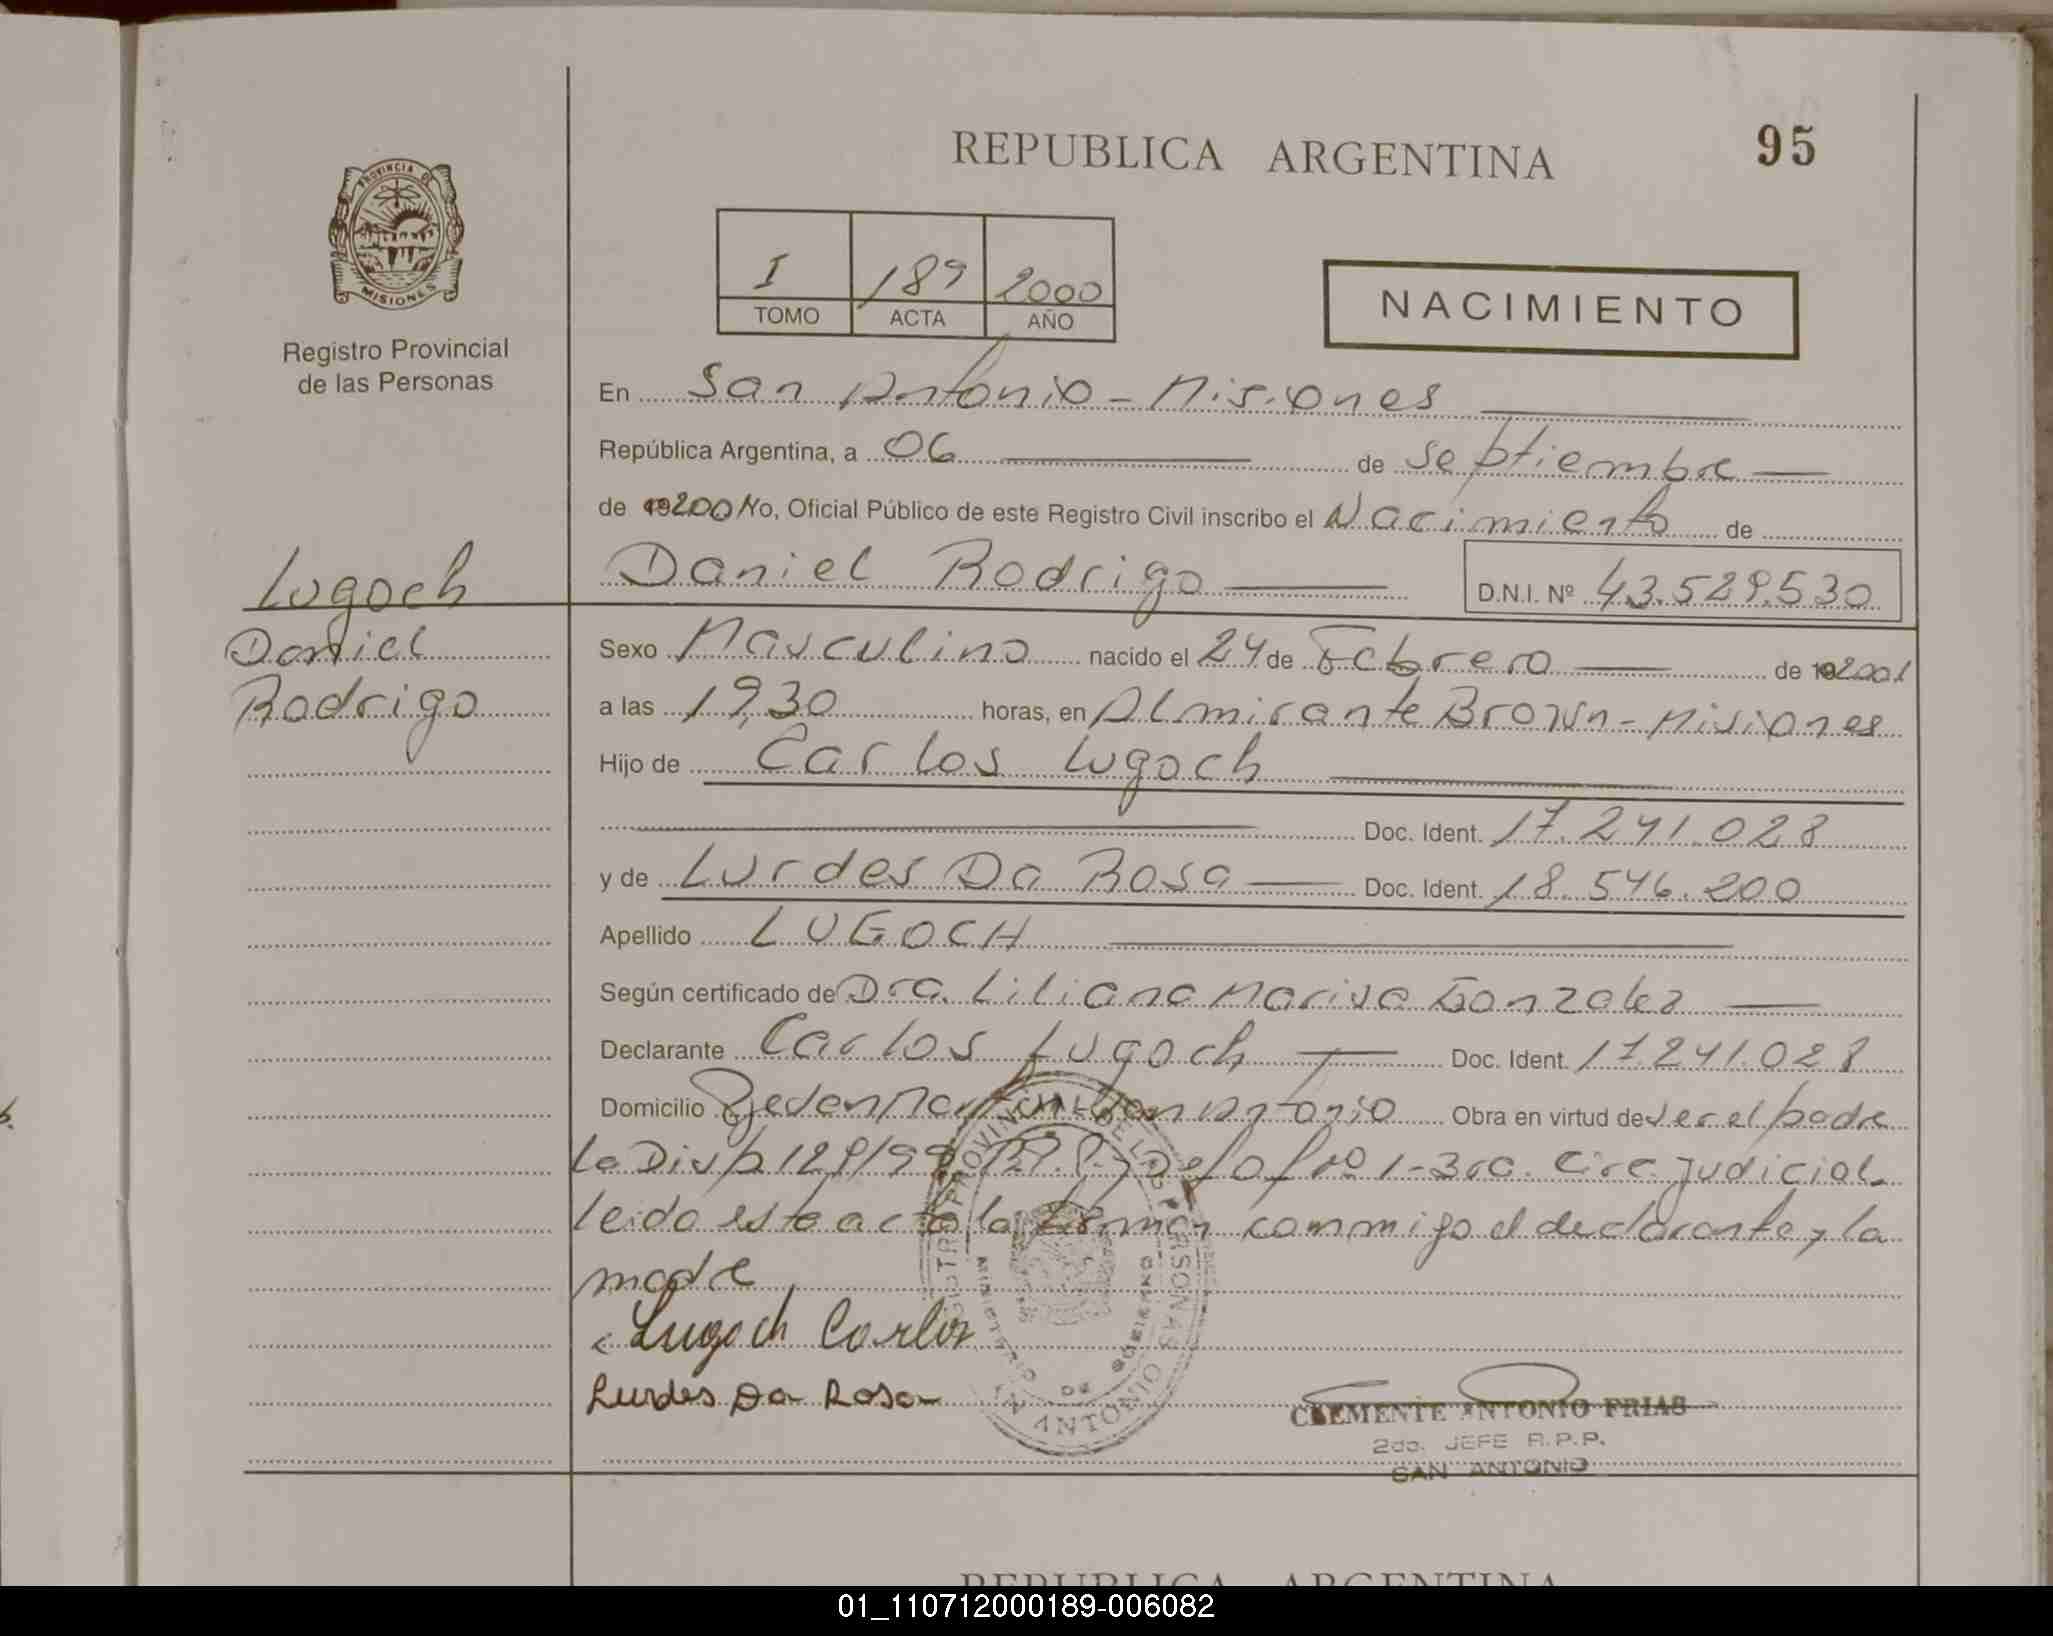 REPUBLICA ARGENTINA
95
PROVINCIA DE
MISIONES
Registro Provincial
de las Personas
I 189 2000
TOMO ACTA AÑO
NACIMIENTO
En San Antonio - Misiones
República Argentina, a 06 de septiembre
de 2000 Yo, Oficial Público de este Registro Civil inscribo el Nacimiento de
Lugoch
Daniel
Rodrigo
Daniel Rodrigo D.N.I. Nº 43.529.530
Sexo Masculino nacido el 24 de Febrero de 2001
a las 19,30 horas, en Almirante Brown - Misiones
Hijo de Carlos Lugoch
Doc. Ident. 17.241.028
y de Lurdes Da Rosa Doc. Ident. 18.546.200
Apellido LUGOCH
Según certificado de Dra. Liliana Marisa Gonzalez
Declarante Carlos Lugoch Doc. Ident. 17.241.028
Domicilio San Antonio Obra en virtud de ser el padre
la Disp 129/99 1-3ra. Circ Judicial
leida esta acta la firman commigo el declarante y la
madre
Lugoch Carlos
Lurdes Da Rosa
REGISTRO PROVINCIAL DE LAS PERSONAS
MINISTERIO DE GOBIERNO
SAN ANTONIO
CLEMENTE ANTONIO FRIAS
2do. JEFE R.P.P.
SAN ANTONIO
REPUBLICA ARGENTINA
01_110712000189-006082